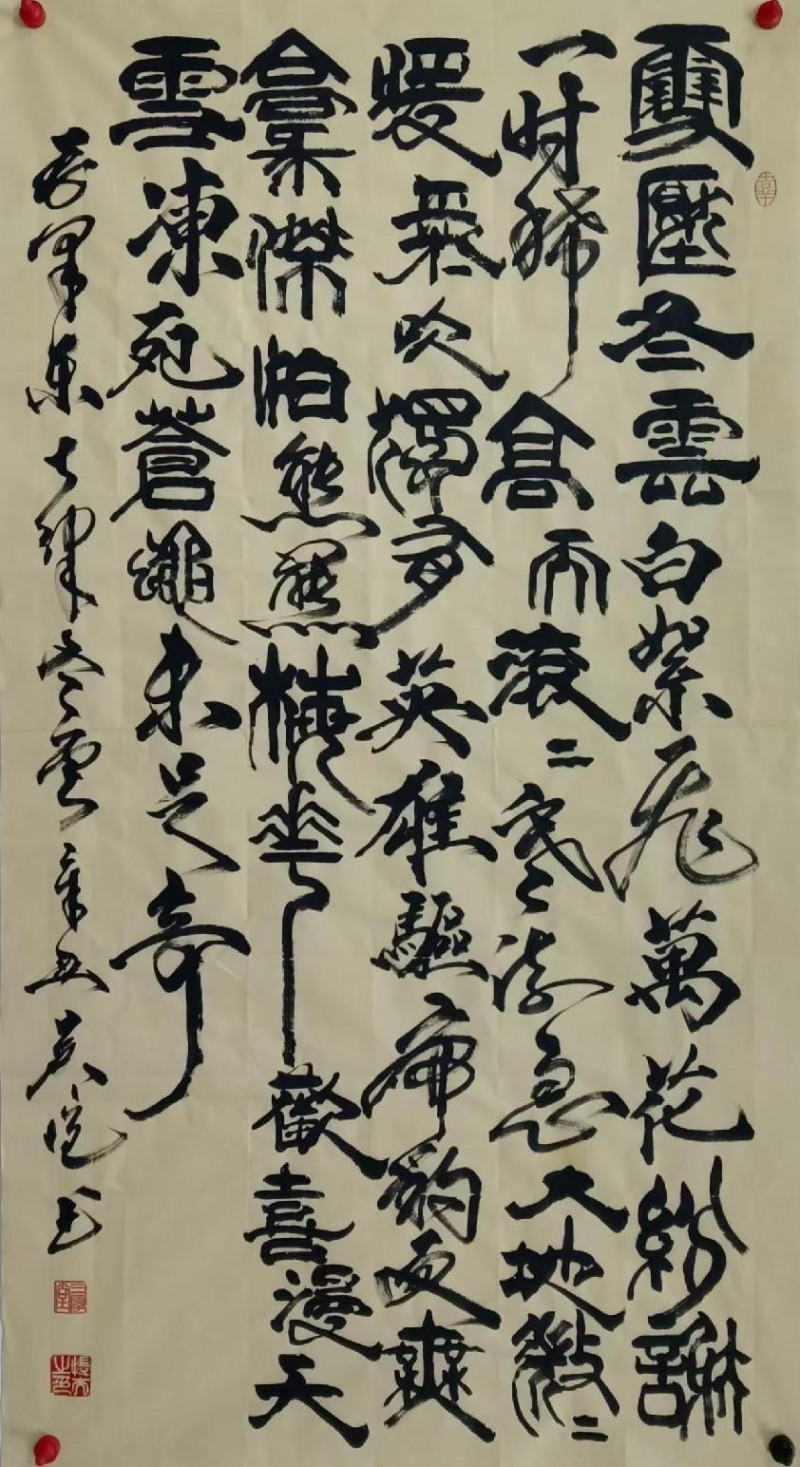 雪壓冬雲白絮飛萬花紛謝
一時稀高天滾二寒流急大地微二
暖氣吹獨有英雄驅虎豹更無
豪傑怕熊羆梅花歡喜漫天
雪凍死蒼蠅未足奇
毛澤東七律冬雲辛丑书